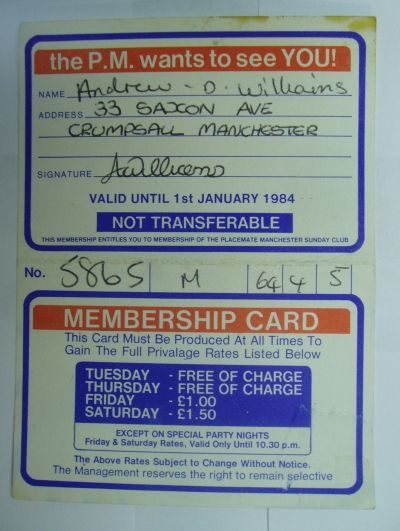 the P.M. wants to see YOU!
NAME Andrew - D. Williams
ADDRESS 33 SAXON AVE
CRUMPSALL MANCHESTER
SIGNATURE A Williams
VALID UNTIL 1ST JANUARY 1984
NOT TRANSFERABLE
THIS MEMBERSHIP ENTITLES YOU TO MEMBERSHIP OF THE PLACEMATE MANCHESTER SUNDAY CLUB
No. 5865 M 64 4 5
MEMBERSHIP CARD
This Card Must Be Produced At All Times To
Gain The Full Privalage Rates Listed Below
TUESDAY - FREE OF CHARGE
THURSDAY - FREE OF CHARGE
FRIDAY - £1.00
SATURDAY - £1.50
EXCEPT ON SPECIAL PARTY NIGHTS
Friday & Saturday Rates, Valid Only Until 10.30 p.m.
The Above Rates Subject to Change Without Notice.
The Management reserves the right to remain selective